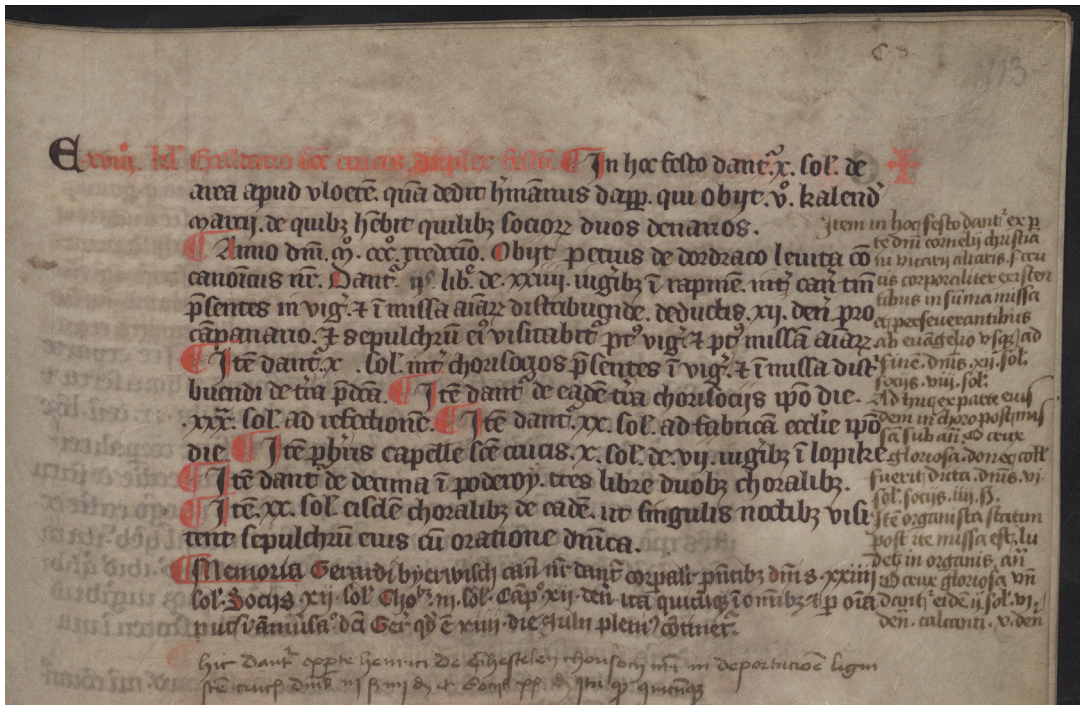 E xviii. kl' Exaltatio sce crucis, duplex festū. ¶ In hoc festo dant᷑. x. sol'. de
area apud vloetē. quā dedit h'mānus dapp. qui obijt. v°. kalend'
marcij. de quibꝫ hēbit quilibꝫ sociorꝝ duos denarios.
¶ Anno dn̄i. m°. ccc°. tredecīo. Obijt petrus de dordraco levita cō
canonicus nr̄. Dant᷑. lib'. de. xxiij. iugibꝫ ī int' can̄
p̄sentes in vig'. ⁊ ī missa aīarꝝ distribuende. deductis. xij. den'. pro
cāpanario. ⁊ sepulchrū ei' visitabit᷑ pt' vig' ⁊ pt' missā aīarꝝ
¶ Itē dant᷑. x. sol'. int' chorisocios p̄sentes ī vig'. ⁊ ī missa dist'
buendi de t'ra p̄dc̄a. ¶ Itē dant᷑ de eadē t'ra chorisocijs ip̄o die.
.xxx. sol'. ad refectionē. ¶ Itē dant᷑. xx. sol'. ad fabricā eccl'ie ip̄o
die. ¶ Itē p̄bris capelle sc̄e crucis. x. sol'. de. vij. iugibꝫ ī lopike
¶ Itē dant᷑ de decima ī poderoy. tres libre duobꝫ choralibꝫ.
¶ Itē. xx. sol'. eisdē choralibꝫ de eadē. ut singulis noctibꝫ visi
tent sepulchrū eius cū oratione dn̄ica.
¶ Memoria Gerardi byerwisch can̄ nr̄i dant᷑ corpalit' p̄ntibꝫ dn̄is. xxiiij
sol'. Socijs xij. sol'. Chor'. iij. sol'. Cap°. xij. den̄ ita quicūqꝫ ī om̄ibꝫ ⁊ p oīa
put ī aīuersa° dc̄i Ger' qd' ē xiiij. die Julij pleni' cōtinet᷑.
hic dant᷑ ex parte henrici de Ghestelen chorisocii nr̄i in deportacōe ligni
sc̄e crucis dn̄is iij ꝫ socijs ita quicūqꝫ
Item in hoc festo dant᷑ ex p
te dn̄i cornelij christia
ni vicarij altaris s' cru
cis corporaliter existen
tibus in sūma missa
et perseverantibus
ab evangelio usqꝫ ad
finē. dn̄is. xij. sol.
socijs. viij. sol.
Ad huc ex parte eius
dem in choro post mis
sā sub an̄. O crux
gloriosa. donec coll'
fuerit dicta. dn̄is. vi.
sol. socijs. iiij. ß.
Itē organista statim
post ite missa est, lu
det in organis. an̄
O crux gloriosa un̄
dant᷑ eidē ij. sol. vi.
den. calcanti. v. den
113